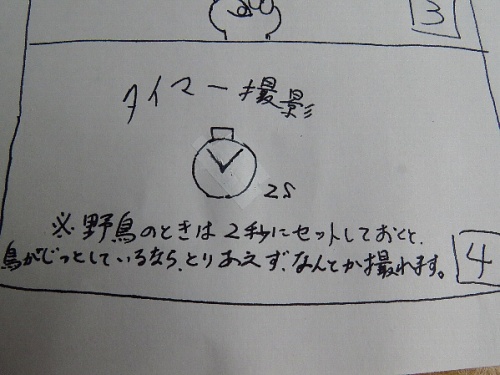 3
タイマー撮影
2S
※野鳥のときは2秒にセットしておくと、
鳥がじっとしているなら、とりあえず、なんとか撮れます。
4